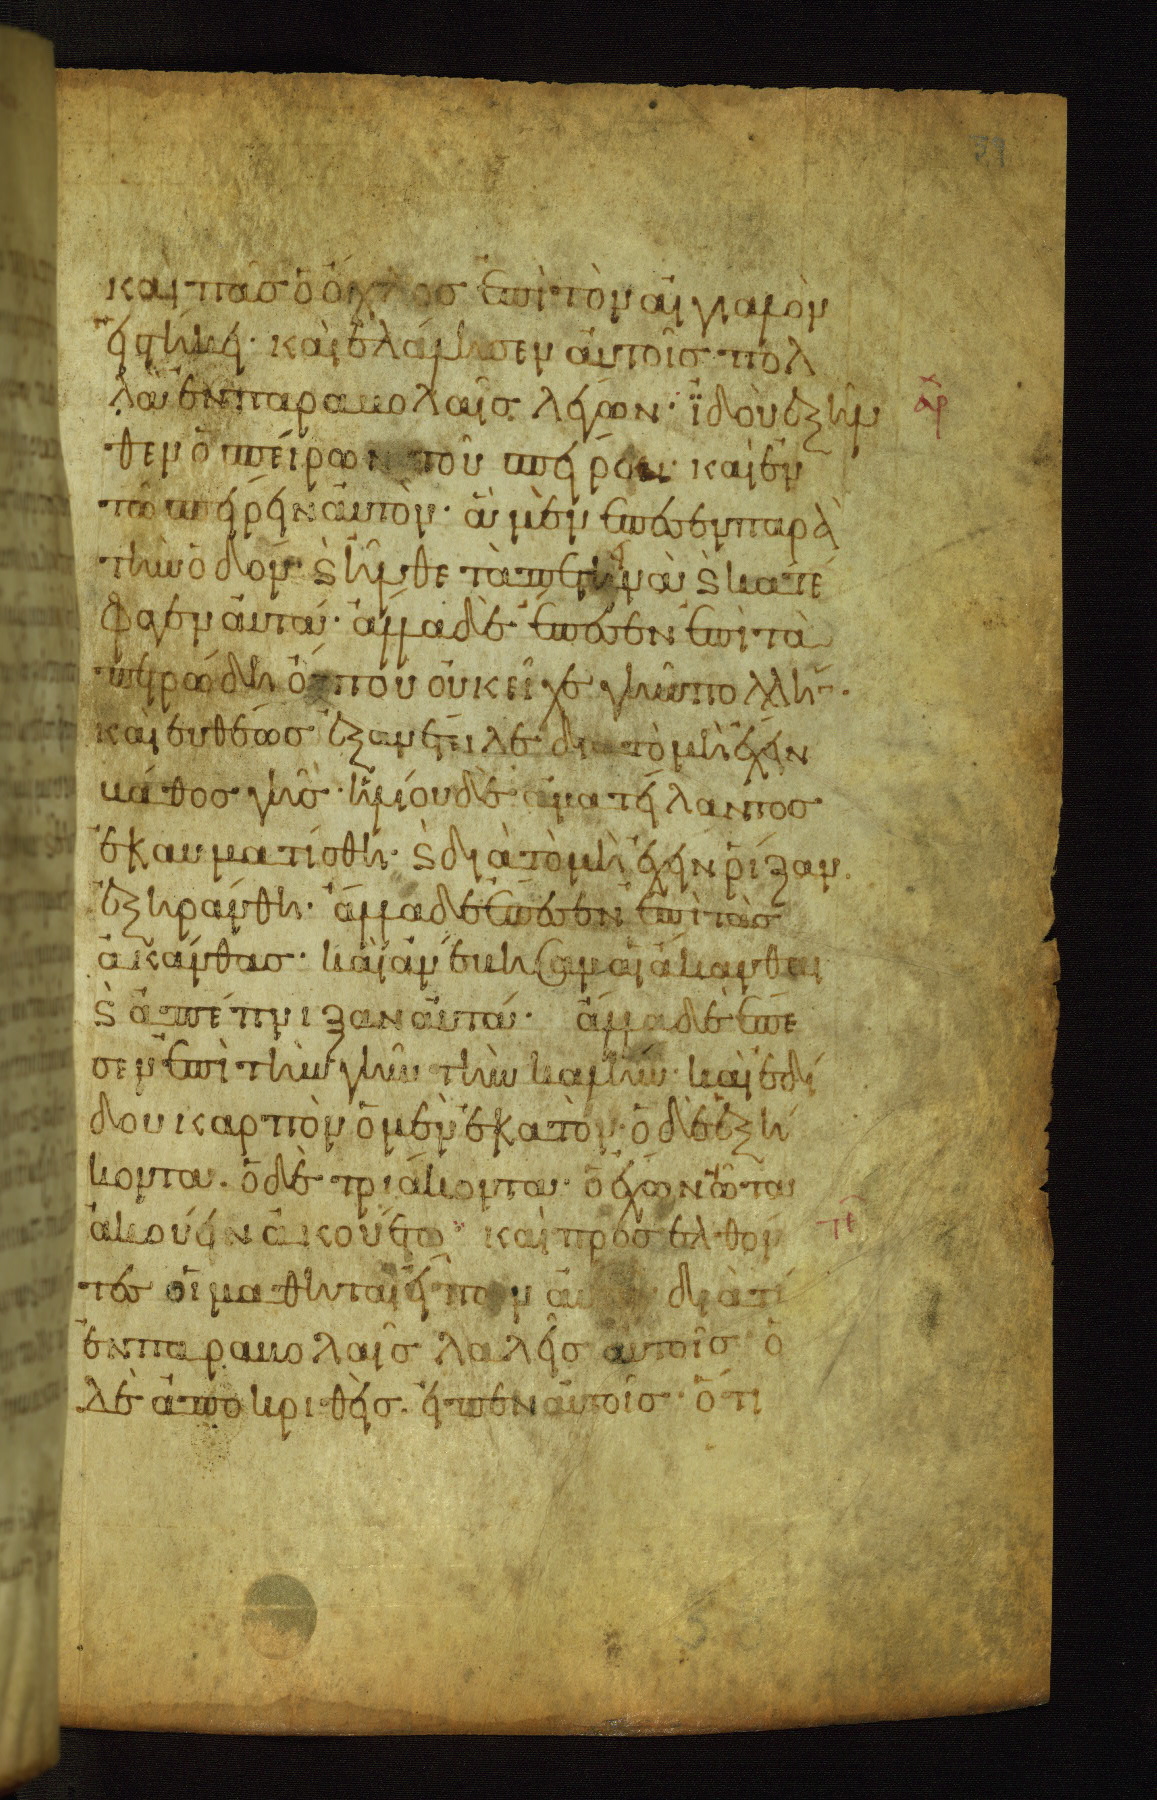 καὶ πᾶς ὁ ὄχλος ἐπὶ τὸν αἰγιαλὸν
εἱστήκει· καὶ ἐλάλησεν αὐτοῖς πολ
λὰ ἐν παραβολαῖς λέγων· ἰδοὺ ἐξῆλ
θεν ὁ σπείρων τοῦ σπείρειν· καὶ ἐν
τῶ σπείρειν αὐτὸν· ἃ μὲν ἔπεσεν παρὰ
τὴν ὁδόν· ϗ ἦλθε τὰ πετεινὰ ϗ κατέ
φαγεν αὐτά· ἄλλα δὲ ἔπεσεν ἐπὶ τὰ
πετρώδη ὅπου οὐκ εἶχε γῆν πολλὴν·
καὶ εὐθέως ἐξανέτειλε διὰ τὸ μὴ ἔχειν
βάθος γῆς· ἡλίου δὲ ἀνατείλαντος
ἐκαυματίσθη· ϗ διὰ τὸ μὴ ἔχειν ῥίζαν
ἐξηράνθη· ἄλλα δὲ ἔπεσεν ἐπὶ τὰς
ἀκάνθας· καὶ ἀνέβησαν αἱ ἄκανθαι
ϗ ἀπέπνιξαν αὐτά· ἄλλα δὲ ἔπε
σεν ἐπὶ τὴν γῆν τὴν καλήν· καὶ ἐδί
δου καρπὸν ὃ μὲν ἑκατὸν· ὃ δὲ ἑξή
κοντα· ὃ δὲ τριάκοντα· ὁ ἔχων ὦτα
ἀκούειν ἀκουέτω· καὶ προσελθόν
τες οἱ μαθηταὶ εἶπον διὰ τί
ἐν παραβολαῖς λαλεῖς αὐτοῖς ὁ
δὲ ἀποκριθεὶς εἶπεν αὐτοῖς· ὅτι